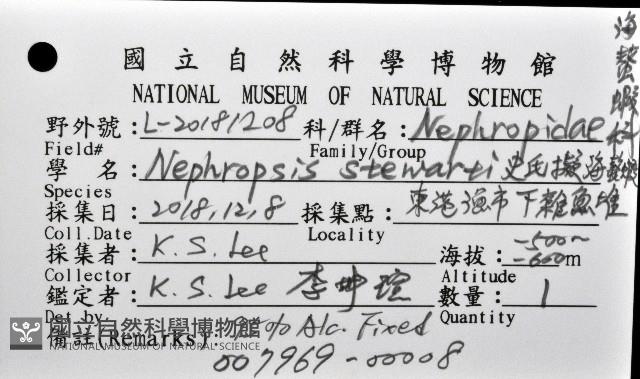 國立自然科學博物館
NATIONAL MUSEUM OF NATURAL SCIENCE
海螯蝦科
野外號: L-20181208 科/群名: Nephropidae
Field# Family/Group
學 名: Nephropsis stewarti 史氏擬海螯蝦
Species
採集日: 2018,12,8 採集點: 東港漁市下雜魚堆
Coll.Date Locality
採集者: K.S. Lee 海拔: -500~-600m
Collector Altitude
鑑定者: K.S. Lee 李坤瑄 數量: 1
Det.by Quantity
備註(Remarks): 95% Alc. Fixed
007969-00008
國立自然科學博物館
NATIONAL MUSEUM OF NATURAL SCIENCE